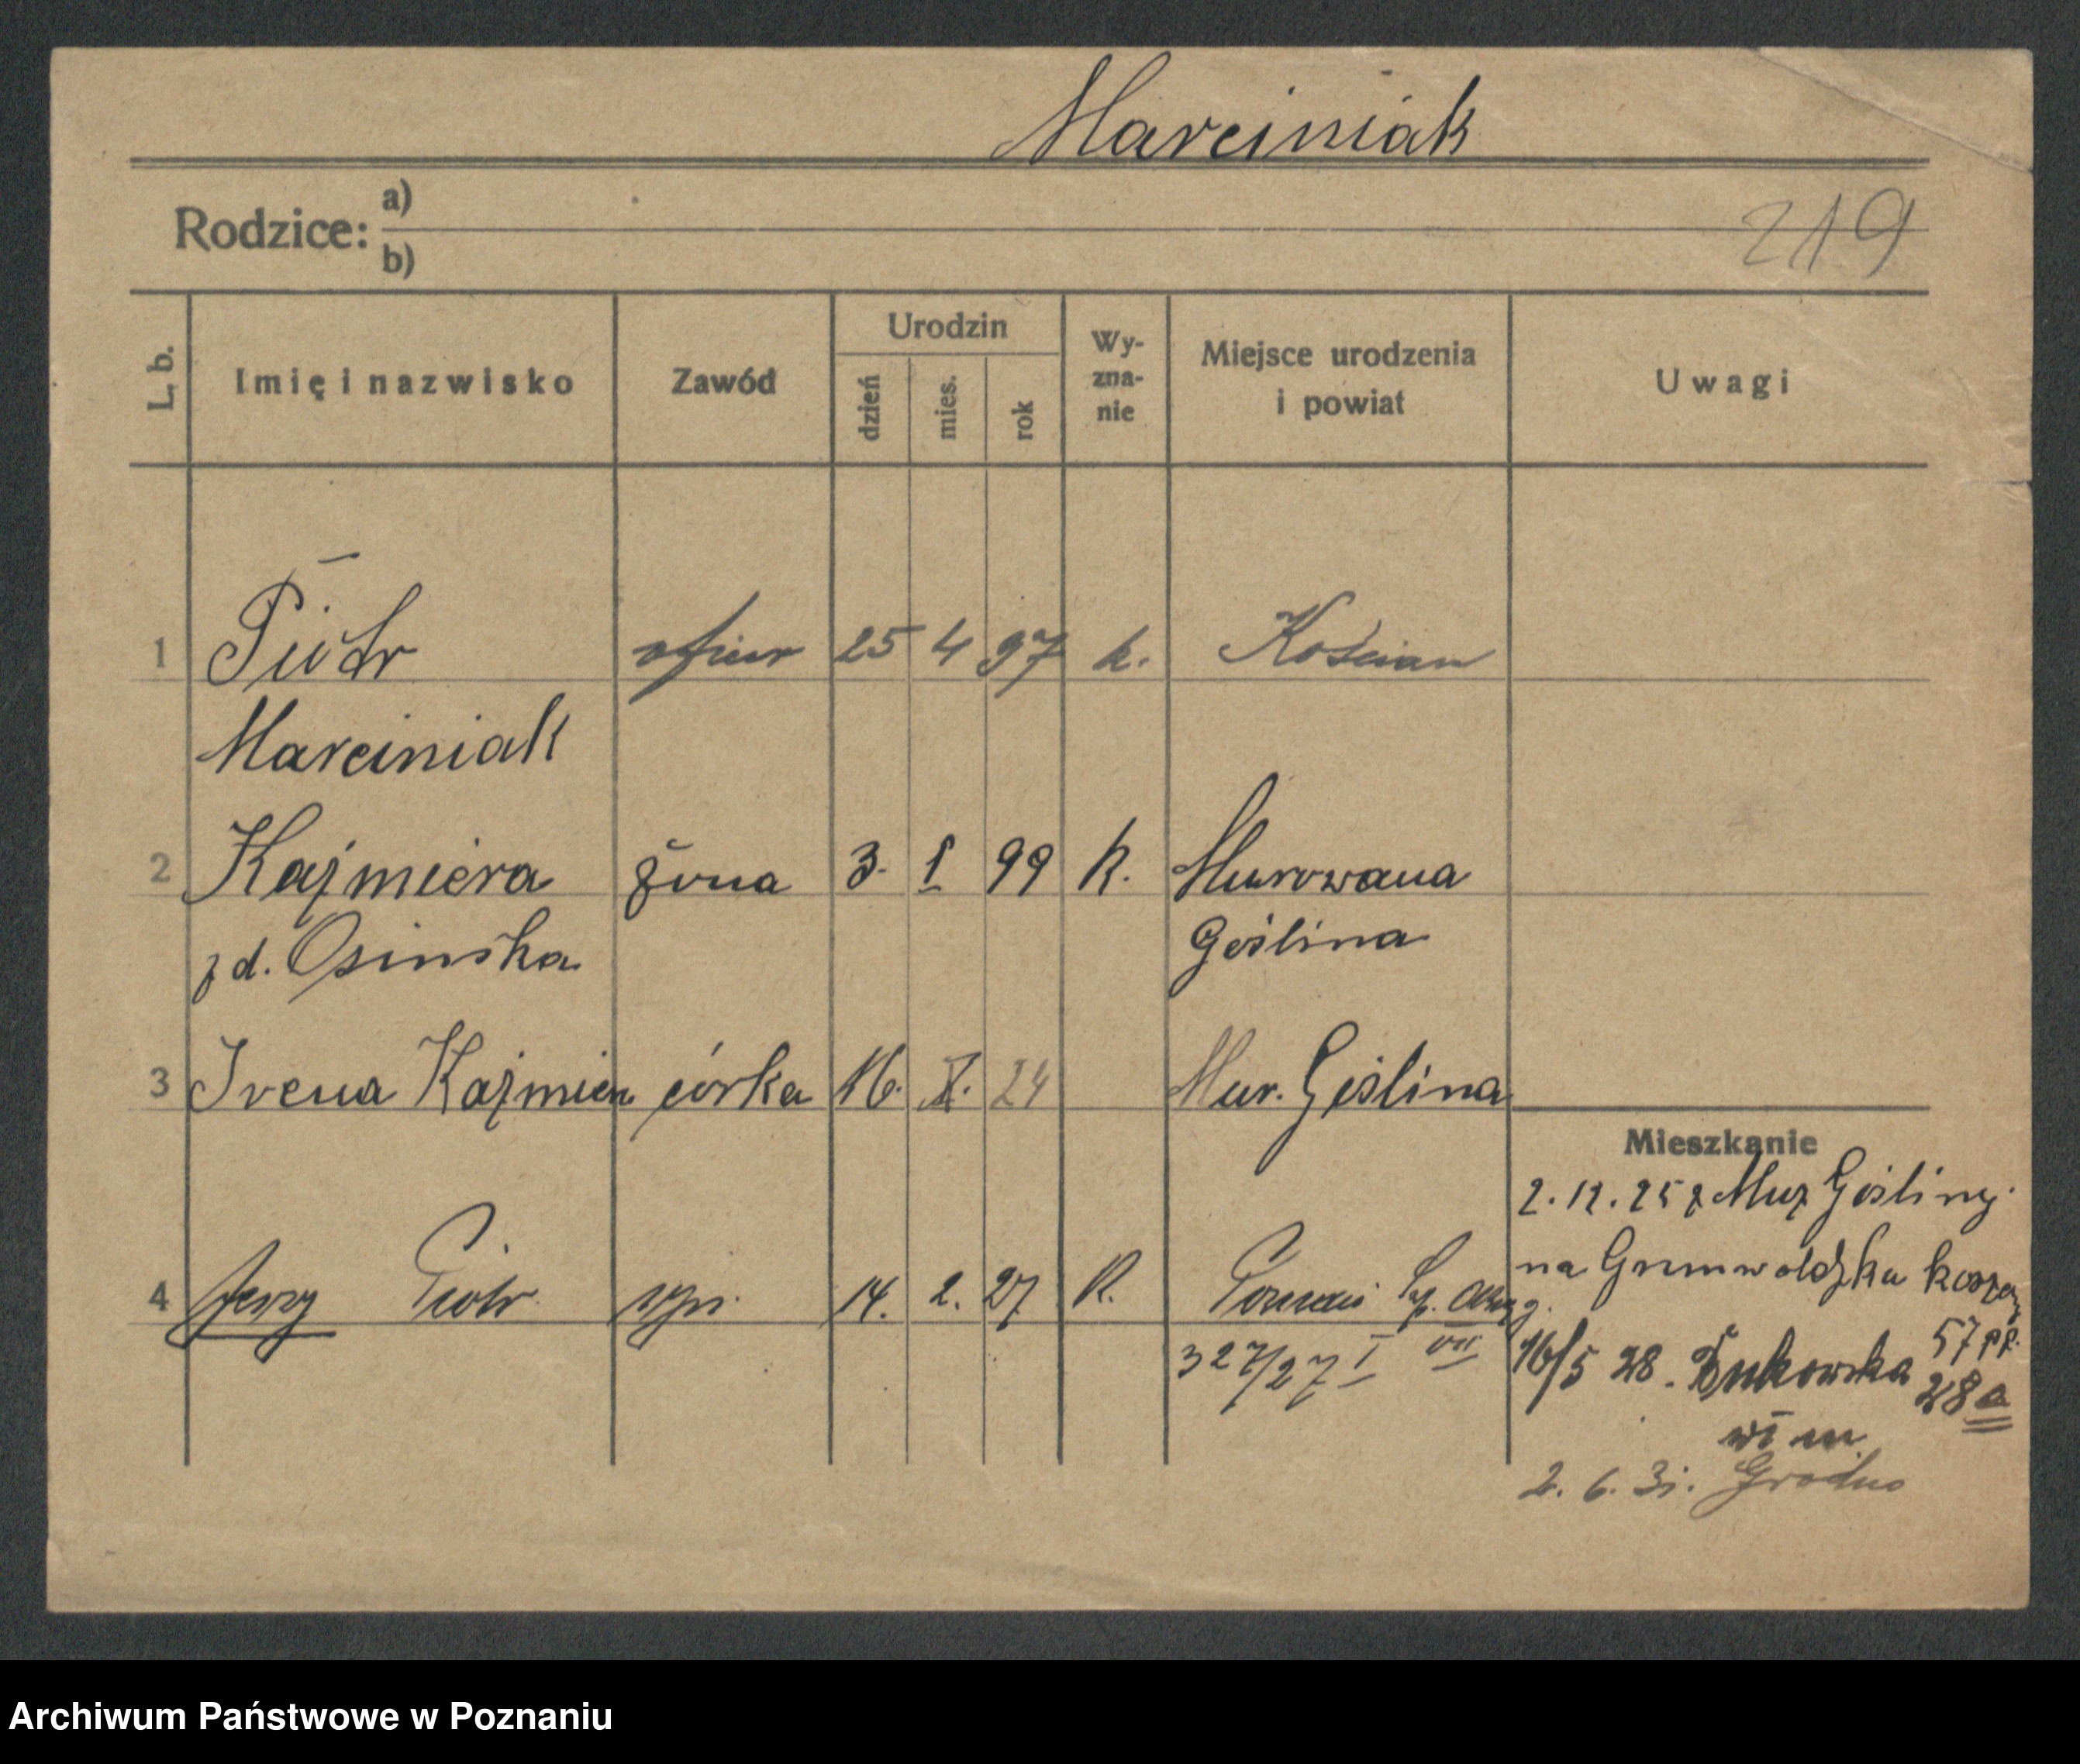 Marciniak
Rodzice: a)
b)
219
L. b.
Imię i nazwisko
Zawód
Urodzin
dzień
mies.
rok
Wy-
zna-
nie
Miejsce urodzenia
i powiat
Uwagi
1 Piotr oficer 25 4 97 k. Kościan
Marciniak
2 Kaźmiera żona 3. I 99 k. Murowana
z d. Osinska Goślina
3 Irena Kaźmiera córka 16. X. 24 Mur. Goślina
Mieszkanie
2. 12. 25 z Mur Gośliny
na Grunwaldzka koszary
57 pp.
4 Jerzy Piotr syn 14. 2. 27 k. Poznań
327/27 I VII
16/5 28. Bukowska 28a
wł m.
2. 6. 31. Grodno
Archiwum Państwowe w Poznaniu